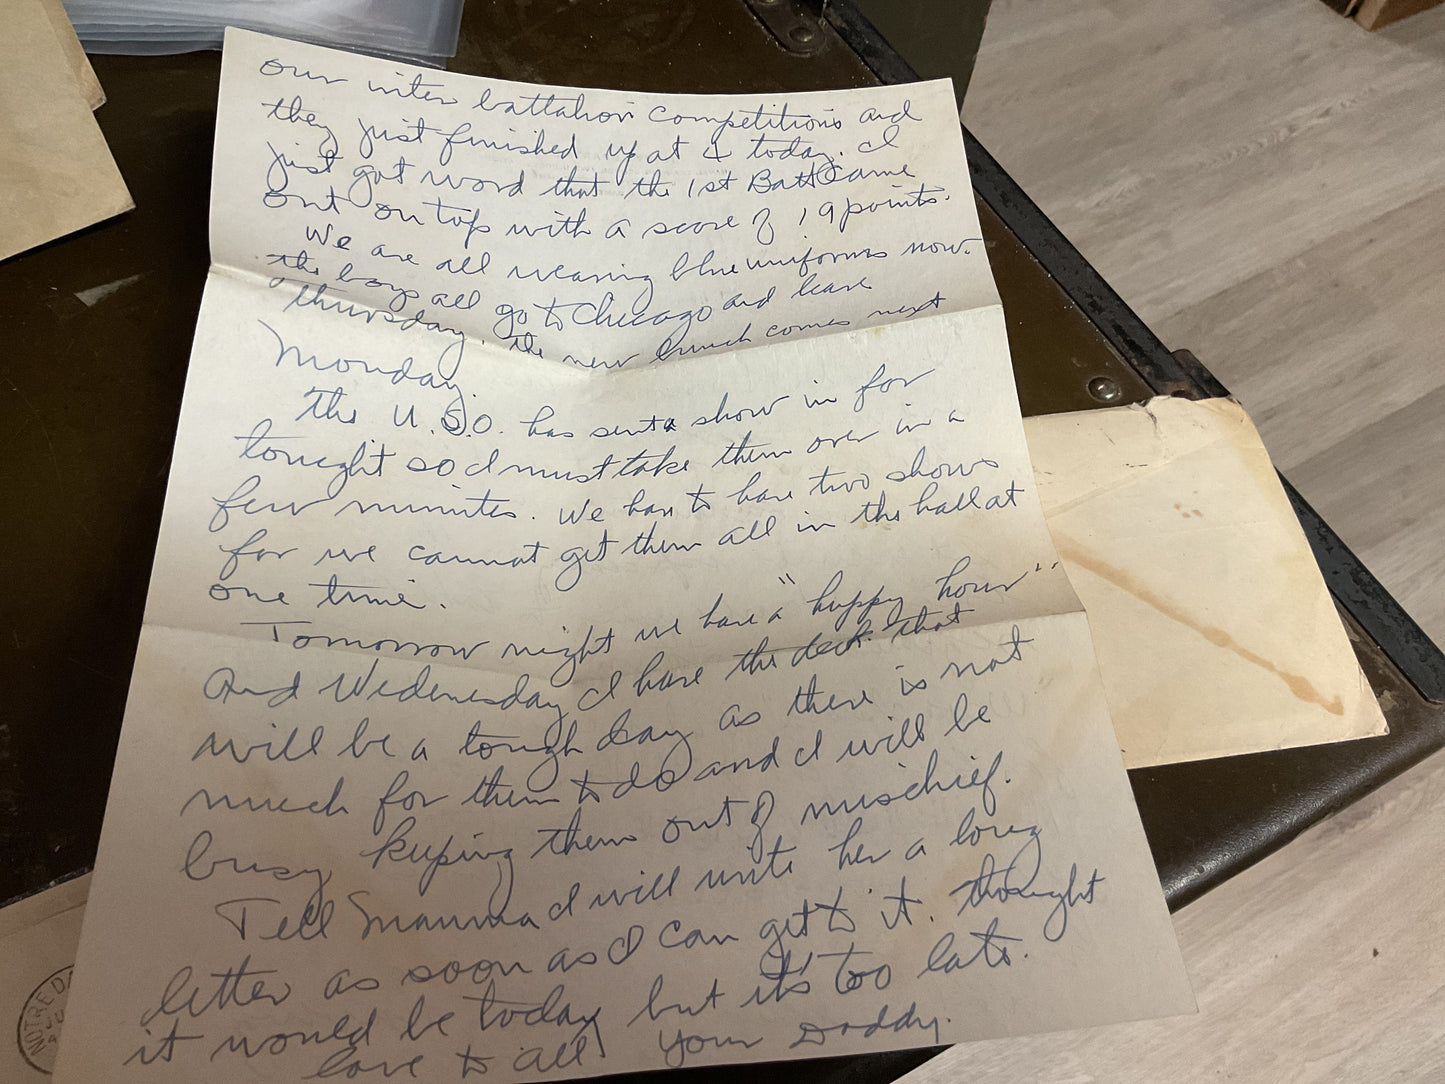 our inter battalion competitions and
they just finished up at 4 today. I
just got word that the 1st Batt Came
out on top with a score of 19 points.
We are all wearing blue uniforms now.
the boys all go to Chicago and leave
thursday. the new bunch comes next
Monday.
the U.S.O. has sent a show in for
tonight so I must take them over in a
few minutes. We have to have two shows
for we cannot get them all in the hall at
one time.
Tomorrow night we have a "happy hour"
And Wednesday I have the deck. that
will be a tough day as there is not
much for them to do and I will be
busy keeping them out of mischief.
Tell Mamma I will write her a long
letter as soon as I can get to it. thought
it would be today but it's too late.
love to all Your Daddy.
NOTRE D